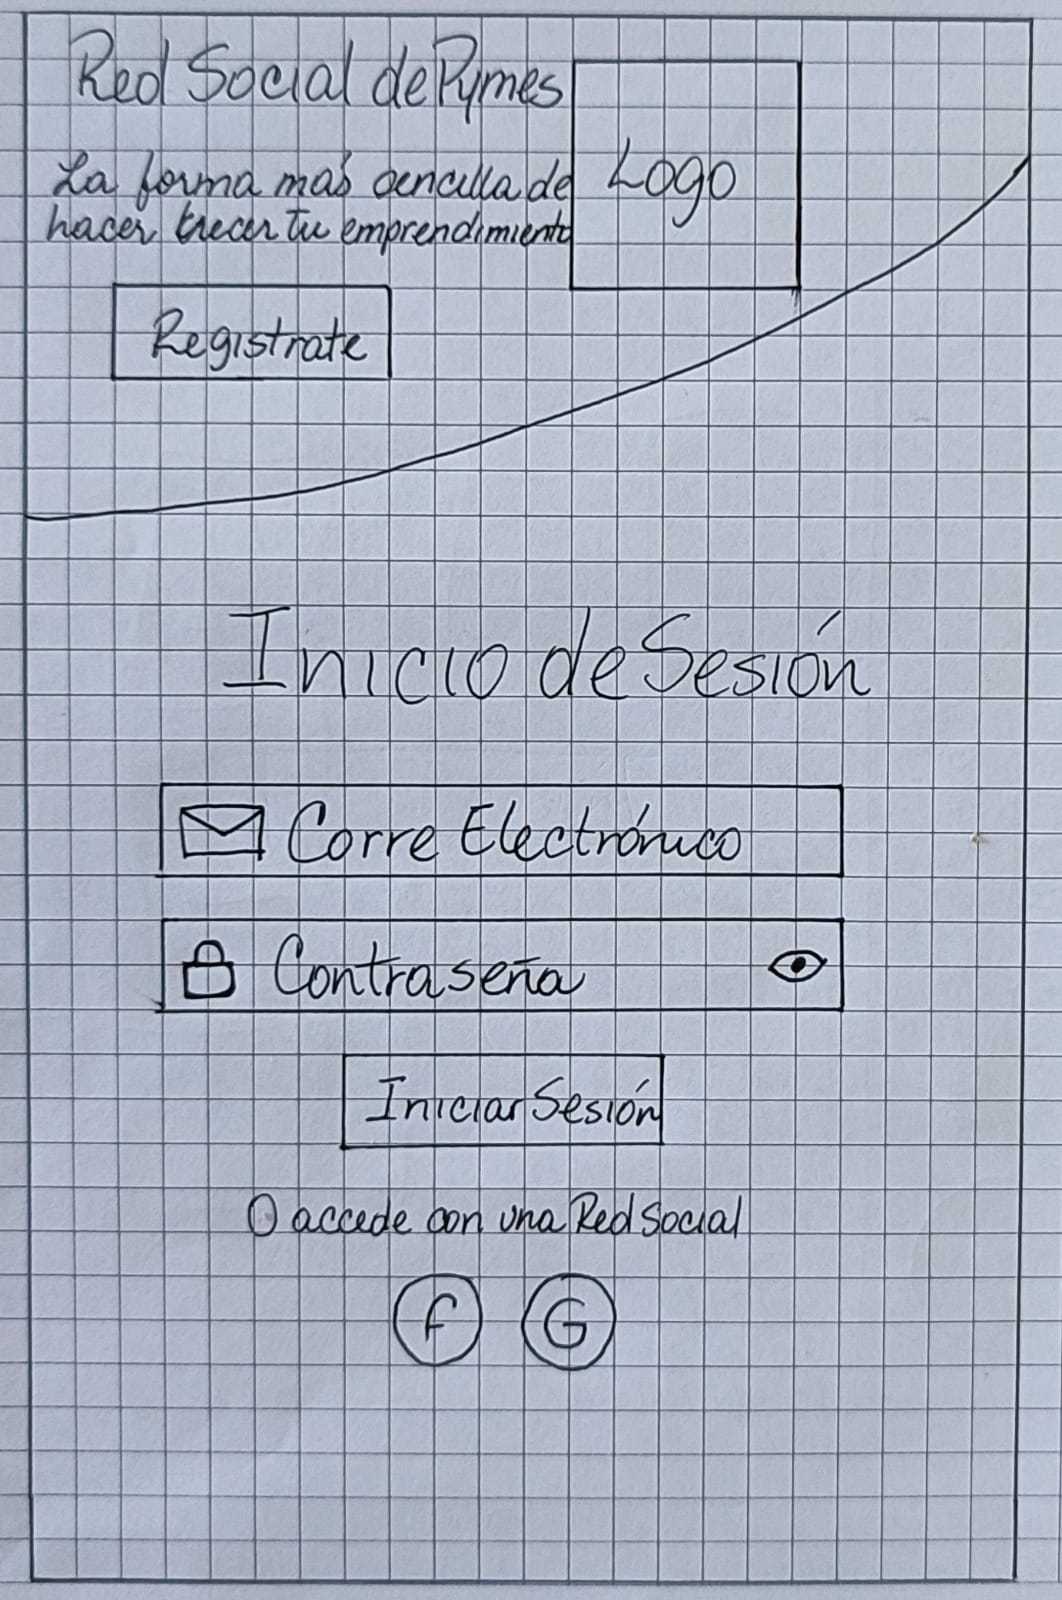 Red Social de Pymes
La forma más sencilla de
hacer crecer tu emprendimiento
Logo
Registrate
Inicio de Sesión
Corre Electrónico
Contraseña
Iniciar Sesión
O accede con una Red Social
f G